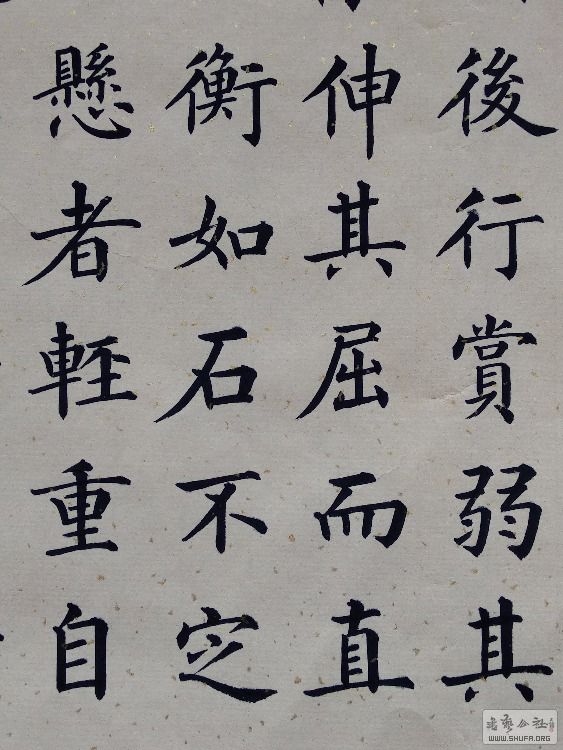 後行賞弱其
伸其屈而直
衡如石不定
懸者輕重自
WWW.SHUFA.ORG